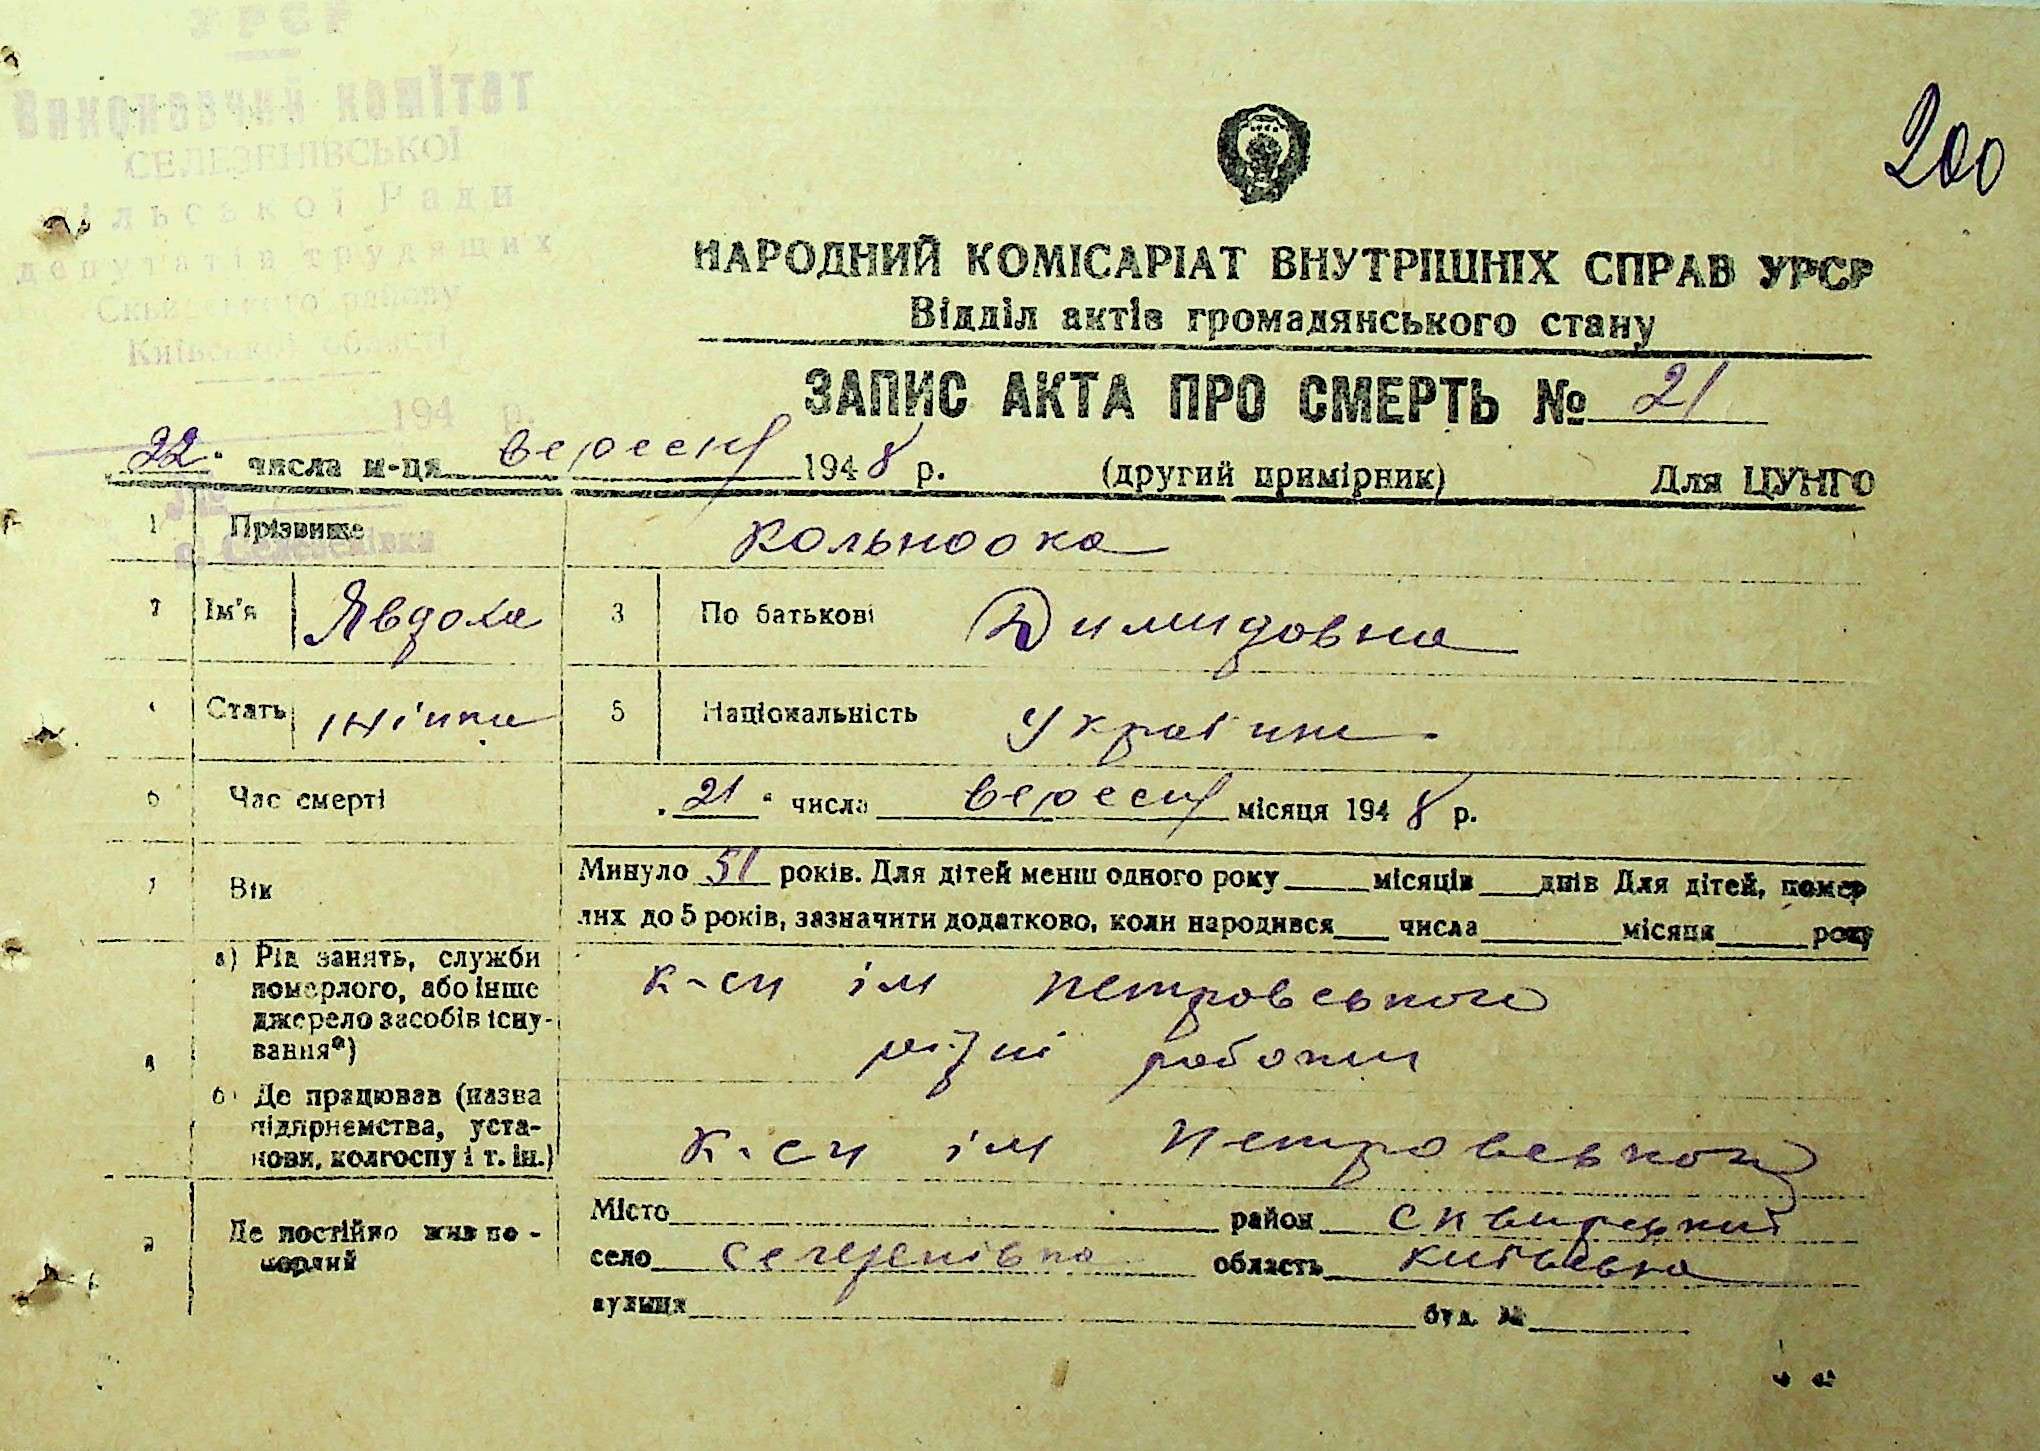 УРСР
Виконавчий комітет
СЕЛЕЗЕНІВСЬКОЇ
сільської Ради
депутатів трудящих
Сквирського району
Київської області
194 р.
№
с. Селезенівка
200
НАРОДНИЙ КОМІСАРІАТ ВНУТРІШНІХ СПРАВ УРСР
Відділ актів громадянського стану
ЗАПИС АКТА ПРО СМЕРТЬ № 21
22 числа м-ця вересня 1948 р. (другий примірник) Для ЦУНГО
1 Прізвище Кольноока
2 Ім'я Явдоха 3 По батькові Димидовна
Стать жінка 5 Національність Українк
6 Час смерті 21 числа вересня місяця 1948 р.
7 Вік Минуло 51 років. Для дітей менш одного року місяців днів Для дітей, помер
лих до 5 років, зазначити додатково, коли народився числа місяця року
8 а) Рід занять, служби
померлого, або інше
джерело засобів існу-
вання*)
к-сп ім Петровського
різні роботи
б) Де працював (назва
підприємства, уста-
нови, колгоспу і т. ін.)
к-сп ім Петровського
9 Де постійно жив по-
мерлий
Місто район Сквирський
село Селезенівка область Київська
вулиця буд. №